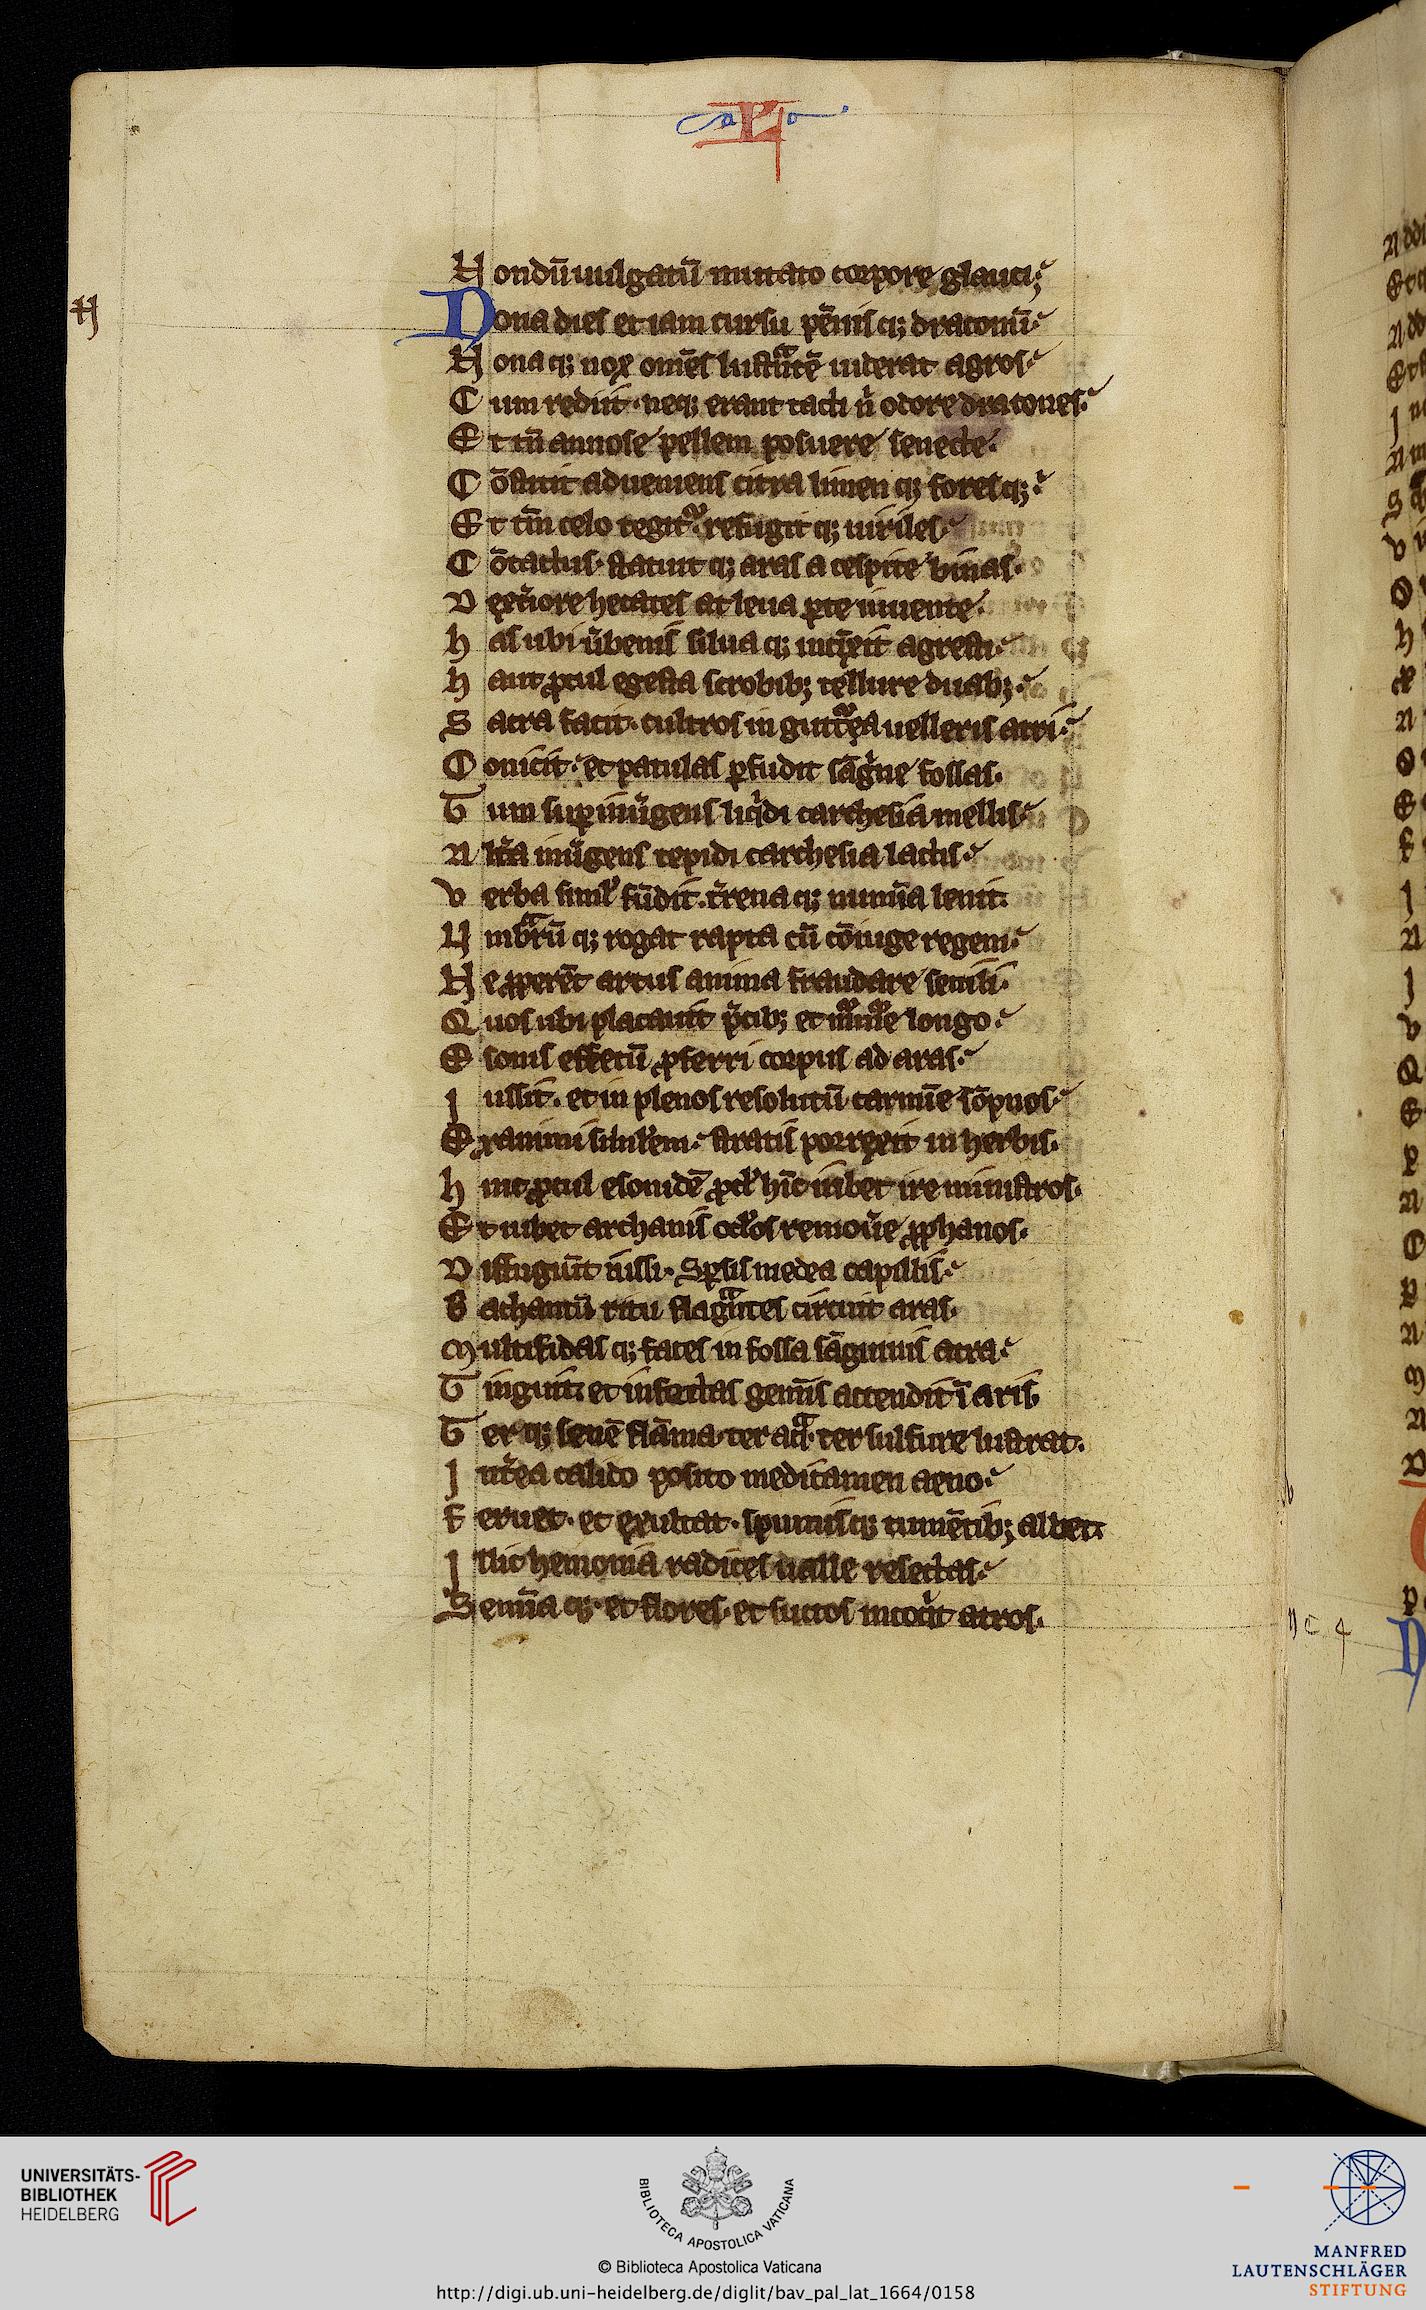 N ondū uulgatū mutato corpore glauci;
D ona dies et iam cursu pēnisq; draconū
N onaq; nox om̄es lustrātē uiderat agros
C um rediit. neq; erant tacti ñ odore dracones
E t tn̄ annose pellem posuere senecte.
C ōstitit adueniens citra limenq; foresq;
E t tm̄ celo tegitur. refugitq; uiriles
C ōtactus. statuitq; aras a cespite binas
D exteriore hecates at leua parte iuuente
h as ubi uerbenis siluaq; incinxit agresti
h aut procul egesta scrobib; tellure duab;
S acra facit. cultros in guttura uelleris atri
C onicit. et patulas perfudit sāguine fossas.
T um super inuergens liquidi carchesia mellis
A ltera inuergens tepidi carchesia lactis
V erba simul fūdit. terrenaq; numina lenit.
U mbrarūq; rogat rapta cū cōiuge regem
N e properēt artus anima fraudare senili.
Q uos ubi placauit precib; et murmure longo
E sonis effetū proferri corpus ad aras
I ussit. et in plenos resolutū carmīe sōpnos
E xanimi similem. stratis porrexit in herbis.
h inc procul esonidē procul hinc iubet ire ministros.
E t iubet archanis oculos remouere prophanos.
D iffugiūt iussi. Sparsis medea capillis
B achantū ritu flagrantes circuit aras.
M ultifidasq; faces in fossa sāguinis atra
T inguit. et infectas geminis accendit ī aris
T erq; senē flāma. ter aqua. ter sulfure lustrat.
I nterea calido posito medicamen aeno
F eruet. et exultat. spumisq; tumētib; albet.
I llic hemonia radices ualle resectas
S eminaq; et flores. et succos incoquit atros.
N
UNIVERSITÄTS-
BIBLIOTHEK
HEIDELBERG
BIBLIOTECA APOSTOLICA VATICANA
© Biblioteca Apostolica Vaticana
http://digi.ub.uni-heidelberg.de/diglit/bav_pal_lat_1664/0158
MANFRED
LAUTENSCHLÄGER
STIFTUNG